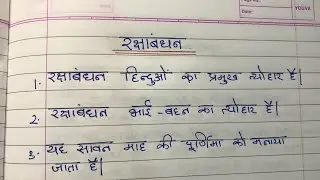 रक्षाबंधन
1. रक्षाबंधन हिन्दुओं का प्रमुख त्योहार है|
2. रक्षाबंधन भाई-बहन का त्योहार है|
3. यह सावन माह की पूर्णिमा को मनाया
जाता है|